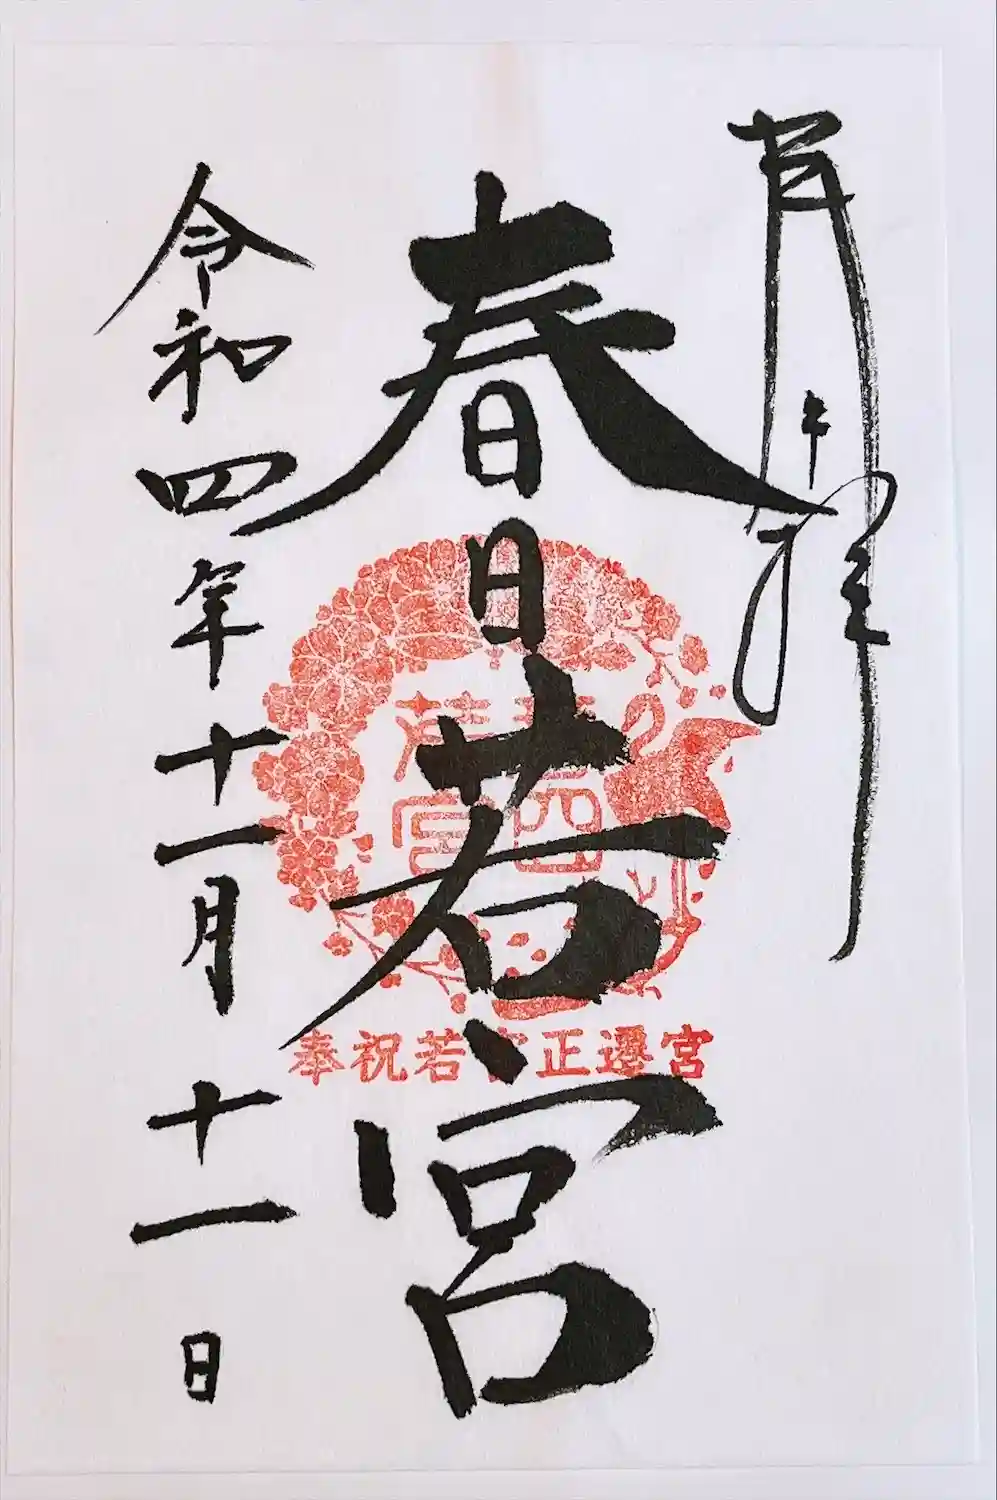 奉拝
春日若宮
若宮
奉祝若宮正遷宮
令和四年十一月十一日